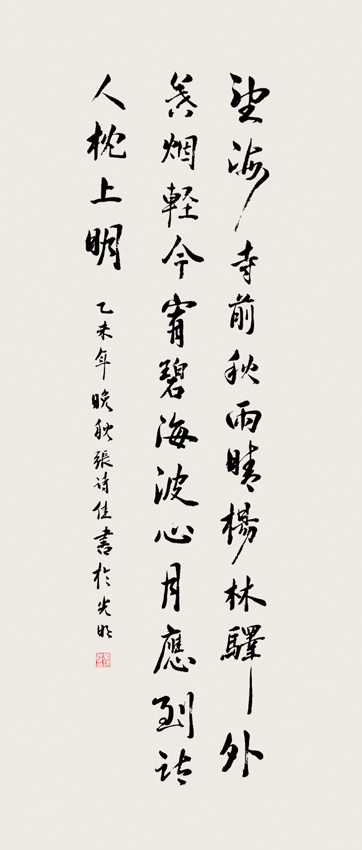 望海寺前秋雨晴楊林驛外
暮烟輕今宵碧海波心月應到诗
人枕上明
乙未年晚秋張诗佳書於光明